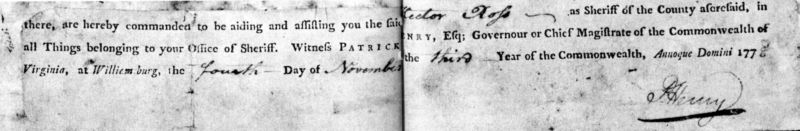 there, are hereby commanded to be aiding and aſſiſting you the ſaid Hector Roſs as Sheriff of the County aforeſaid, in
all Things belonging to your Office of Sheriff. Witneſs PATRICK HENRY, Eſq; Governour or Chief Magiſtrate of the Commonwealth of
Virginia, at Williamſburg, the fourth Day of November the third Year of the Commonwealth, Annoque Domini 177
P. Henry